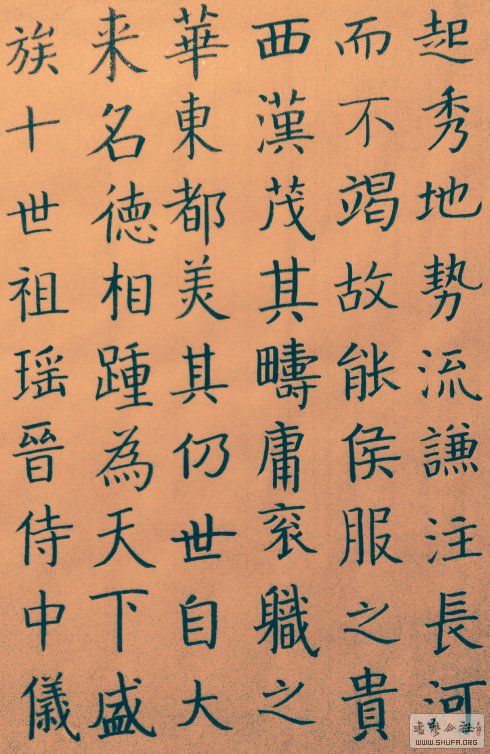 起秀地勢流謙注長河
而不竭故能侯服之貴
西漢茂其疇庸袞職之
華東都美其仍世自大
来名徳相踵為天下盛
族十世祖瑶晉侍中儀
WWW.SHUFA.ORG